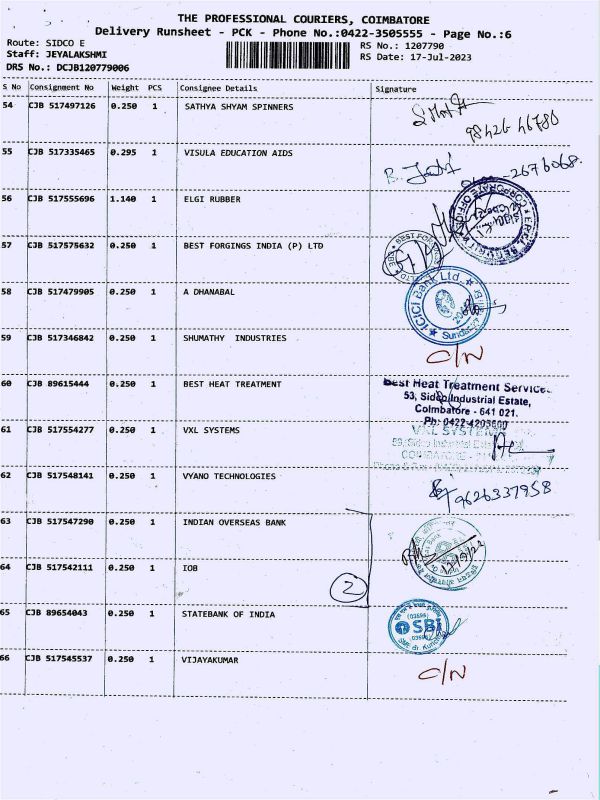 THE PROFESSIONAL COURIERS, COIMBATORE
Delivery Runsheet - PCK - Phone No.:0422-3505555 - Page No.:6
Route: SIDCO E
Staff: JEYALAKSHMI
DRS No.: DCJB120779006
RS No.: 1207790
RS Date: 17-Jul-2023
S No Consignment No Weight PCS Consignee Details Signature
54 CJB 517497126 0.250 1 SATHYA SHYAM SPINNERS
98426 46780
55 CJB 517335465 0.295 1 VISULA EDUCATION AIDS
2676068.
56 CJB 517555696 1.140 1 ELGI RUBBER
CORPORATE OFFICE
57 CJB 517575632 0.250 1 BEST FORGINGS INDIA (P) LTD
58 CJB 517479905 0.250 1 A DHANABAL
ICICI Bank Ltd.
59 CJB 517346842 0.250 1 SHUMATHY INDUSTRIES
C/N
60 CJB 89615444 0.250 1 BEST HEAT TREATMENT
Best Heat Treatment Services
53, Sidco Industrial Estate,
Coimbatore - 641 021.
Ph: 0422-4203600
61 CJB 517554277 0.250 1 VXL SYSTEMS
VXL SYSTEMS
62 CJB 517548141 0.250 1 VYANO TECHNOLOGIES
9626337958
63 CJB 517547290 0.250 1 INDIAN OVERSEAS BANK
64 CJB 517542111 0.250 1 IOB
2
65 CJB 89654043 0.250 1 STATEBANK OF INDIA
SBI
66 CJB 517545537 0.250 1 VIJAYAKUMAR
C/N